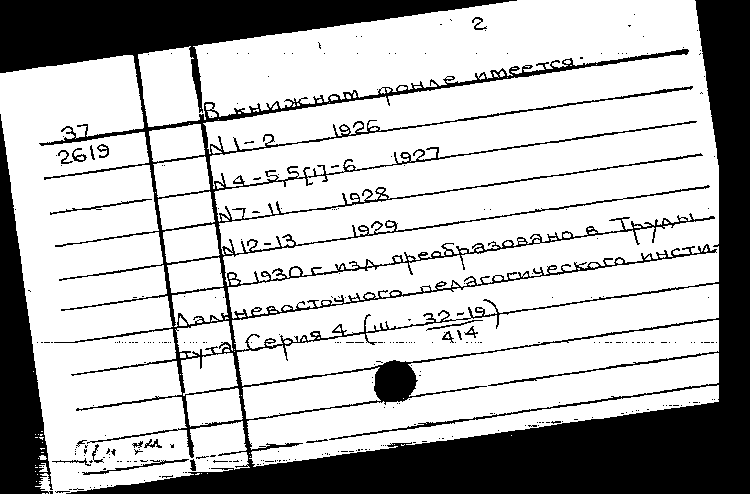 2
В книжном фонде имеется:
37
2619
N 1-2 1926
N 4-5,5[1]-6 1927
N 7-11 1928
N 12-13 1929
В 1930 г. изд. преобразовано в Труды
Дальневосточного педагогического инсти-
тута Серия 4 (ш. 32-19
414)